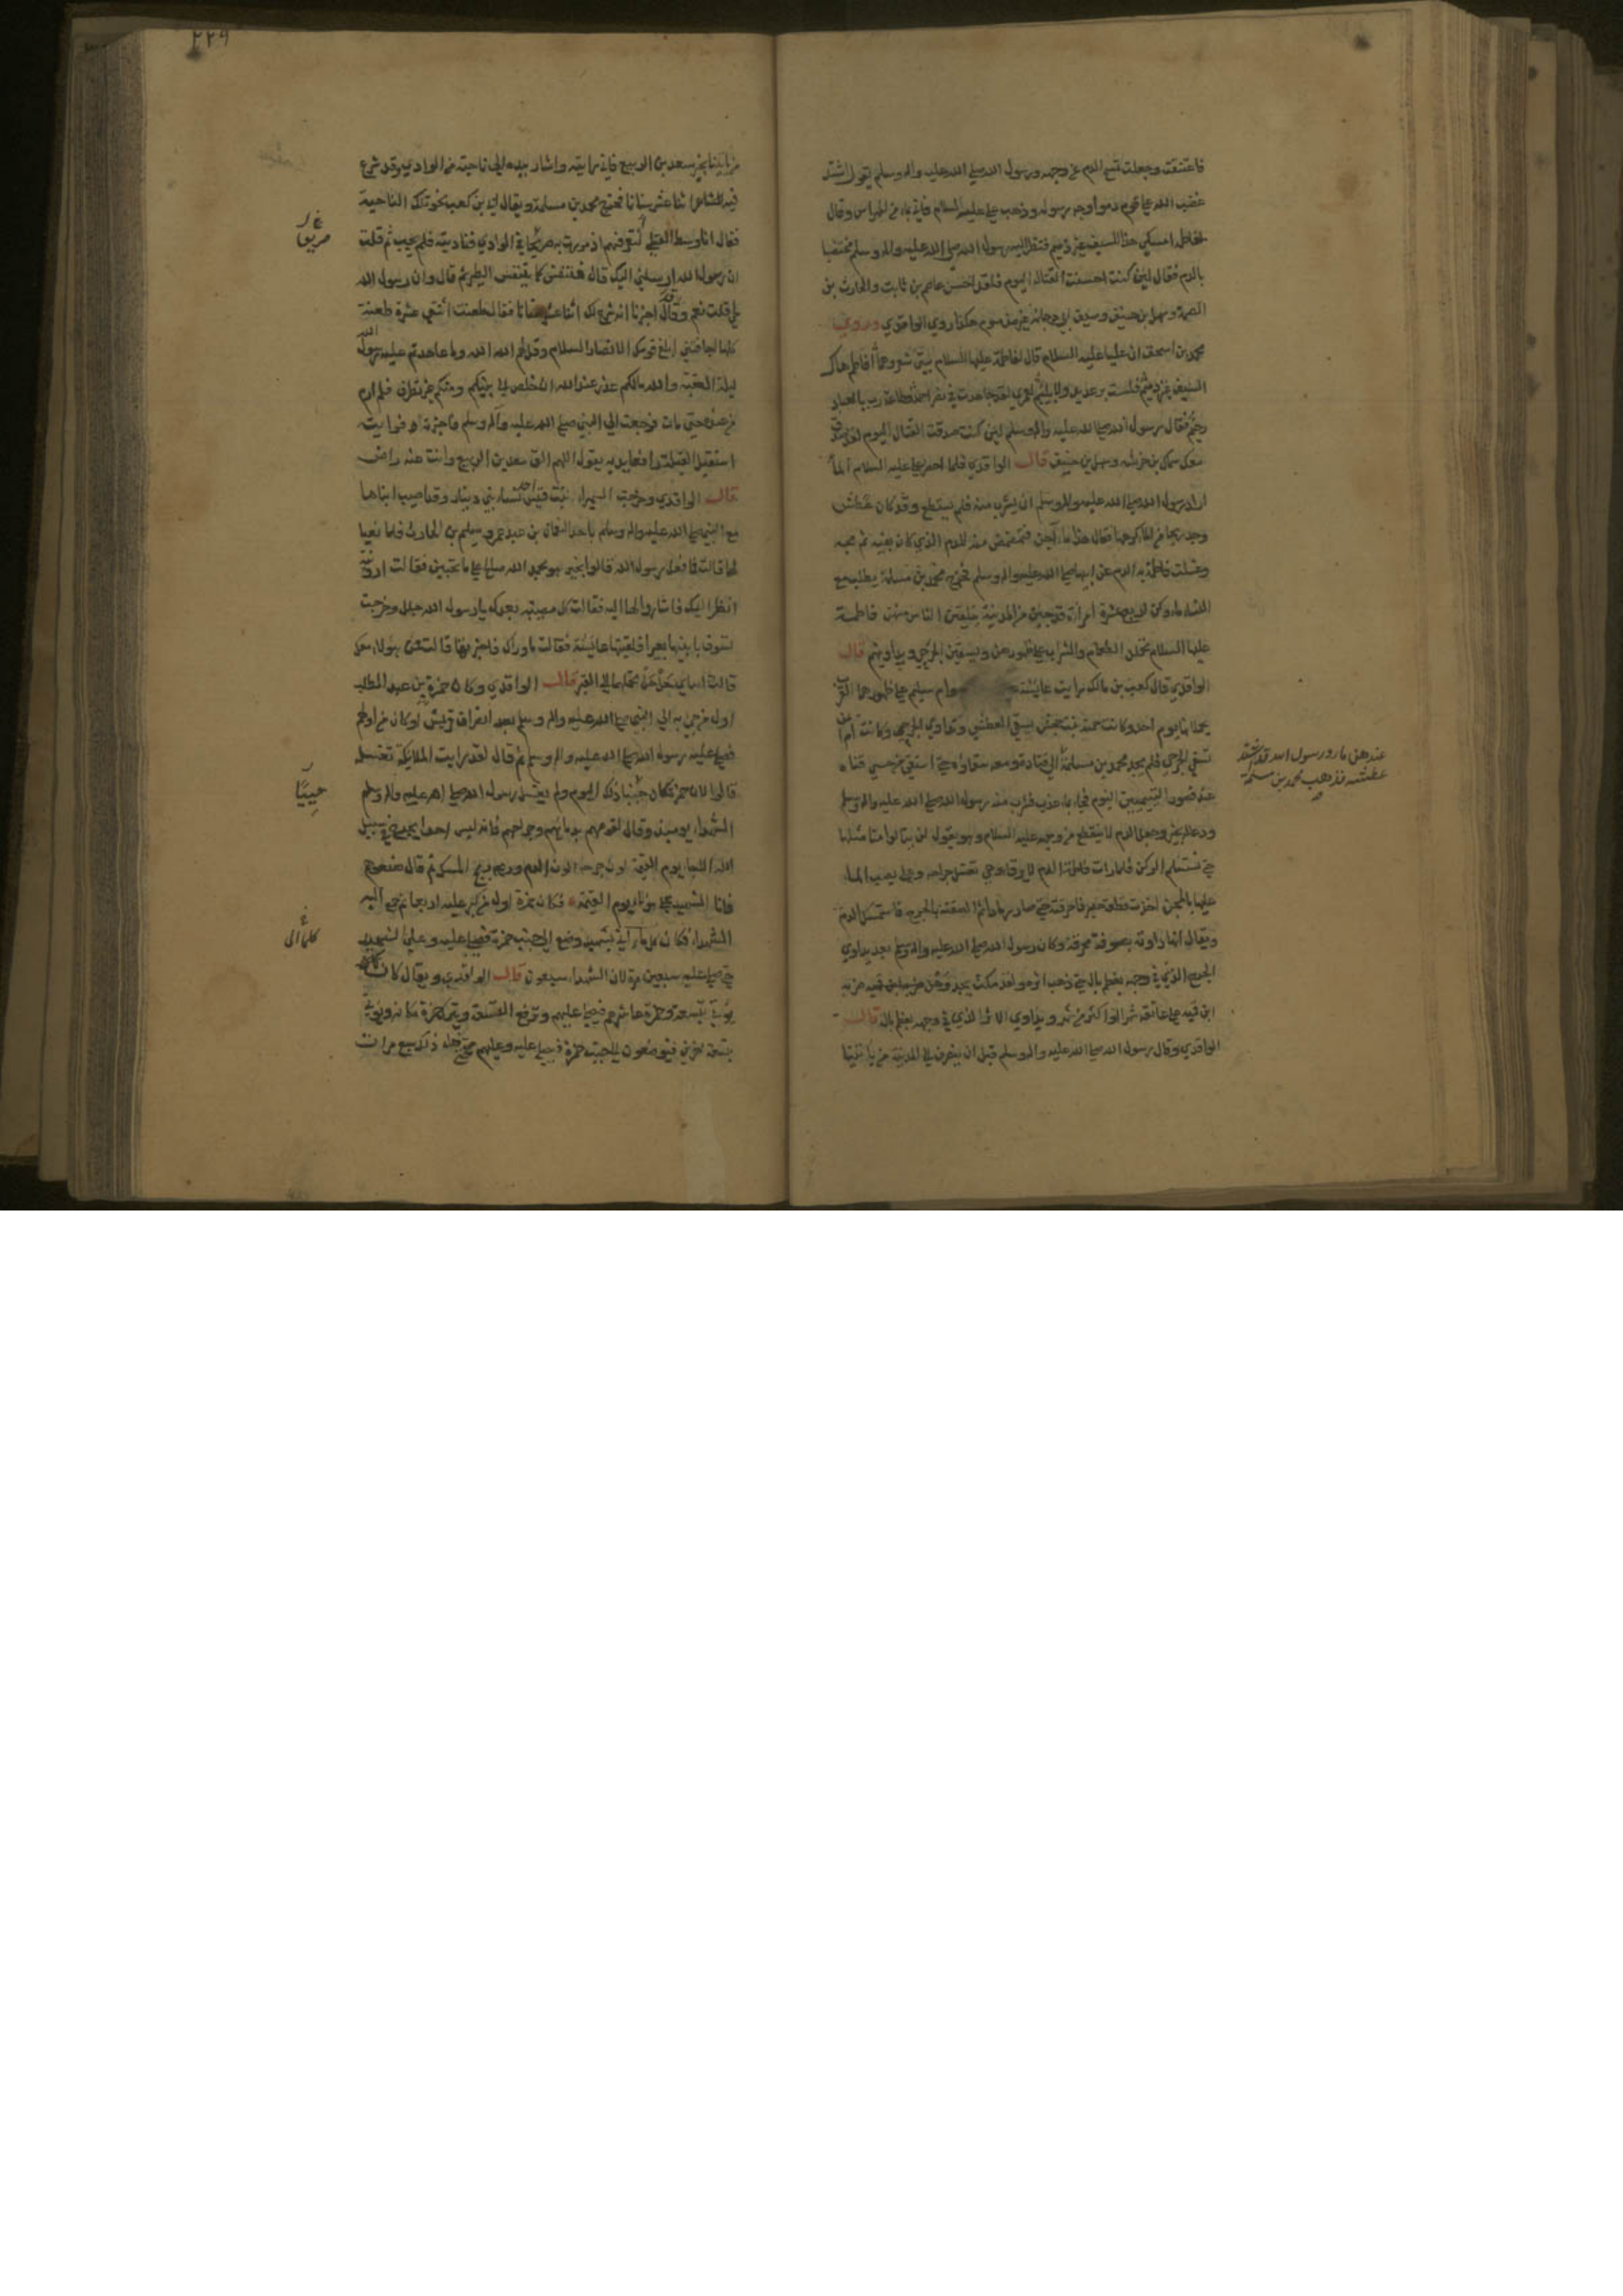 فاعتنقته وجعلت تمسح الدم عن وجهه ورسول الله صلى الله عليه واله وسلم يقول اشتد
غضب الله على قوم دموا وجه رسوله وذهب علي عليه السلام فاتى بماء من المهراس وقال
لفاطمة امسكي هذا السيف غير ذميم فنظر اليه رسول الله صلى الله عليه واله وسلم مختضبا
بالدم فقال لئن كنت احسنت القتال اليوم فلقد احسن عاصم بن ثابت والحارث بن
الصمة وسهل بن حنيف وسيف ابي دجانة غير مذموم هكذا روى الواقدي وروى
محمد بن اسحق ان عليا عليه السلام قال لفاطمة عليها السلام بيتي شعر وهما أفاطم هاك
السيف غير ذميم فلست برعديد ولا بلئيم لعمري لقد جاهدت في نصر احمد وطاعة رب بالعباد
رحيم فقال رسول الله صلى الله عليه واله وسلم لئن كنت صدقت القتال اليوم لقد صدق
معك سماك بن خرشة وسهل بن حنيف قال الواقدي فلما احضر علي عليه السلام الماء
اراد رسول الله صلى الله عليه واله وسلم ان يشرب منه فلم يستطع وقد كان عطش
ووجد ريحا من الماء كرهها فقال هذا ماء آجن فتمضمض منه للدم الذي كان بفيه ثم مجه
وغسلت فاطمة به الدم عن ابيها صلى الله عليه واله وسلم فخرج محمد بن مسلمة يطلب مع
النساء ماء وكن اربع عشرة امراة قد جئن من المدينة يتلقين الناس منهن فاطمة
عليها السلام يحملن الطعام والشراب على ظهورهن ويسقين الجرحى ويداوينهم قال
الواقدي قال كعب بن مالك رايت عايشة وام سليم على ظهورهما القرب
يحملانها يوم احد وكانت حمنة بنت جحش تسقي العطشى وتداوي الجرحى وكانت ام ايمن
تسقي الجرحى فلم يجد محمد بن مسلمة الى قناة ومعه سقاؤه حتى استقى من حسي قناة
عند قصور التيميين اليوم فجاء بماء عذب فشرب منه رسول الله صلى الله عليه واله وسلم
ودعا له بخير وجعل الدم لا ينقطع من وجهه عليه السلام وهو يقول لن ينالوا منا مثلها
حتى نستلم الركن فلما رات فاطمة الدم لا يرقأ وهي تغسل جراحه وعلي يصب الماء
عليها بالمجن اخذت قطعة حصير فاحرقته حتى صار رمادا ثم الصقته بالجرح فاستمسك الدم
ويقال انها داوته بصوفة محرقة وكان رسول الله صلى الله عليه واله وسلم بعد يداوي
الجرح الذي في وجهه بعظم بال حتى ذهب اثره ولقد مكث يجد وهن ضربة ابن قميه ضربه
ابن قميه على عاتقه شهرا او اكثر من شهر ويداوي الاثر الذي في وجهه بعظم بال قال
الواقدي وقال رسول الله صلى الله عليه واله وسلم قبل ان ينصرف الى المدينة من ياتينا
عندهن ماء ورسول الله قد اشتد
عطشه فذهب محمد بن مسلمة
صح
٢٢٩
من ياتينا بخبر سعد بن الربيع فاني رايته واشار بيده الى ناحية من الوادي وقد شرع
فيه اثنا عشر سنانا فخرج محمد بن مسلمة ويقال ابي بن كعب نحو تلك الناحية
فقال انا وسط القتلى اتعرفهم اذ مررت به صريعا في الوادي فناديته فلم يجب ثم قلت
ان رسول الله ارسلني اليك قال فتنفس كما يتنفس الطير ثم قال وان رسول الله
حي قلت نعم وقد اخبرنا انه شرع لك اثنا عشر سنانا فقال طعنت اثنتي عشرة طعنة
كلها اجافتني ابلغ قومك الانصار السلام وقل لهم الله الله وما عاهدتم عليه رسول الله
ليلة العقبة والله مالكم عذر عند الله ان خلص الى نبيكم ومنكم عين تطرف فلم ارم
من عنده حتى مات فرجعت الى النبي صلى الله عليه وآله وسلم فاخبرته فرايته
استقبل القبلة رافعا يديه يقول اللهم الق سعد بن الربيع وانت عنه راض
قال الواقدي وخرجت السميراء بنت قيس احد نساء بني دينار وقد اصيب ابناها
مع النبي صلى الله عليه واله وسلم باحد النعمان بن عبد عمرو وسليم بن الحارث فلما نعيا
لها قالت فما فعل رسول الله قالوا بخير هو بحمد الله صالح على ما تحبين فقالت ارونيه
انظر اليه فاشاروا لها اليه فقالت كل مصيبة بعدك يا رسول الله جلل وخرجت
تسوق بابنيها بعيرا فلقيتها عائشة فقالت ما وراك فاخبرتها قالت فمن هولاء معك
قالت ابناي حل حل تحملهما الى القبر قال الواقدي وكان حمزة بن عبد المطلب
اول من جيء به الى النبي صلى الله عليه واله وسلم بعد انصراف قريش او كان من اولهم
فصلى عليه رسول الله صلى الله عليه واله وسلم ثم قال لقد رايت الملايكة تغسله
قالوا لان حمزة كان جنبا ذلك اليوم ولم يغسل رسول الله صلى الله عليه واله وسلم
الشهداء يومئذ وقال لفوهم بدمائهم وجراحهم فانه ليس احد يجرح في سبيل
الله الا جاء يوم القيمة لون جرحه لون الدم وريحه ريح المسك ثم قال ضعوهم
فانا الشهيد على هولاء يوم القيمة فكان حمزة اول من كبر عليه اربعا ثم جمع اليه
الشهداء فكان كلما اتي بشهيد وضع الى جنب حمزة فصلى عليه وعلى الشهيد
حتى صلى عليه سبعين مرة لان الشهداء سبعون قال الواقدي ويقال كان
يؤتى بتسعة وحمزة عاشرهم فيصلي عليهم وترفع التسعة ويترك حمزة مكانه ويؤتى
بتسعة اخرين فيوضعون الى جنب حمزة فيصلي عليه وعليهم حتى فعل ذلك سبع مرات
صريعا
كلما اتي